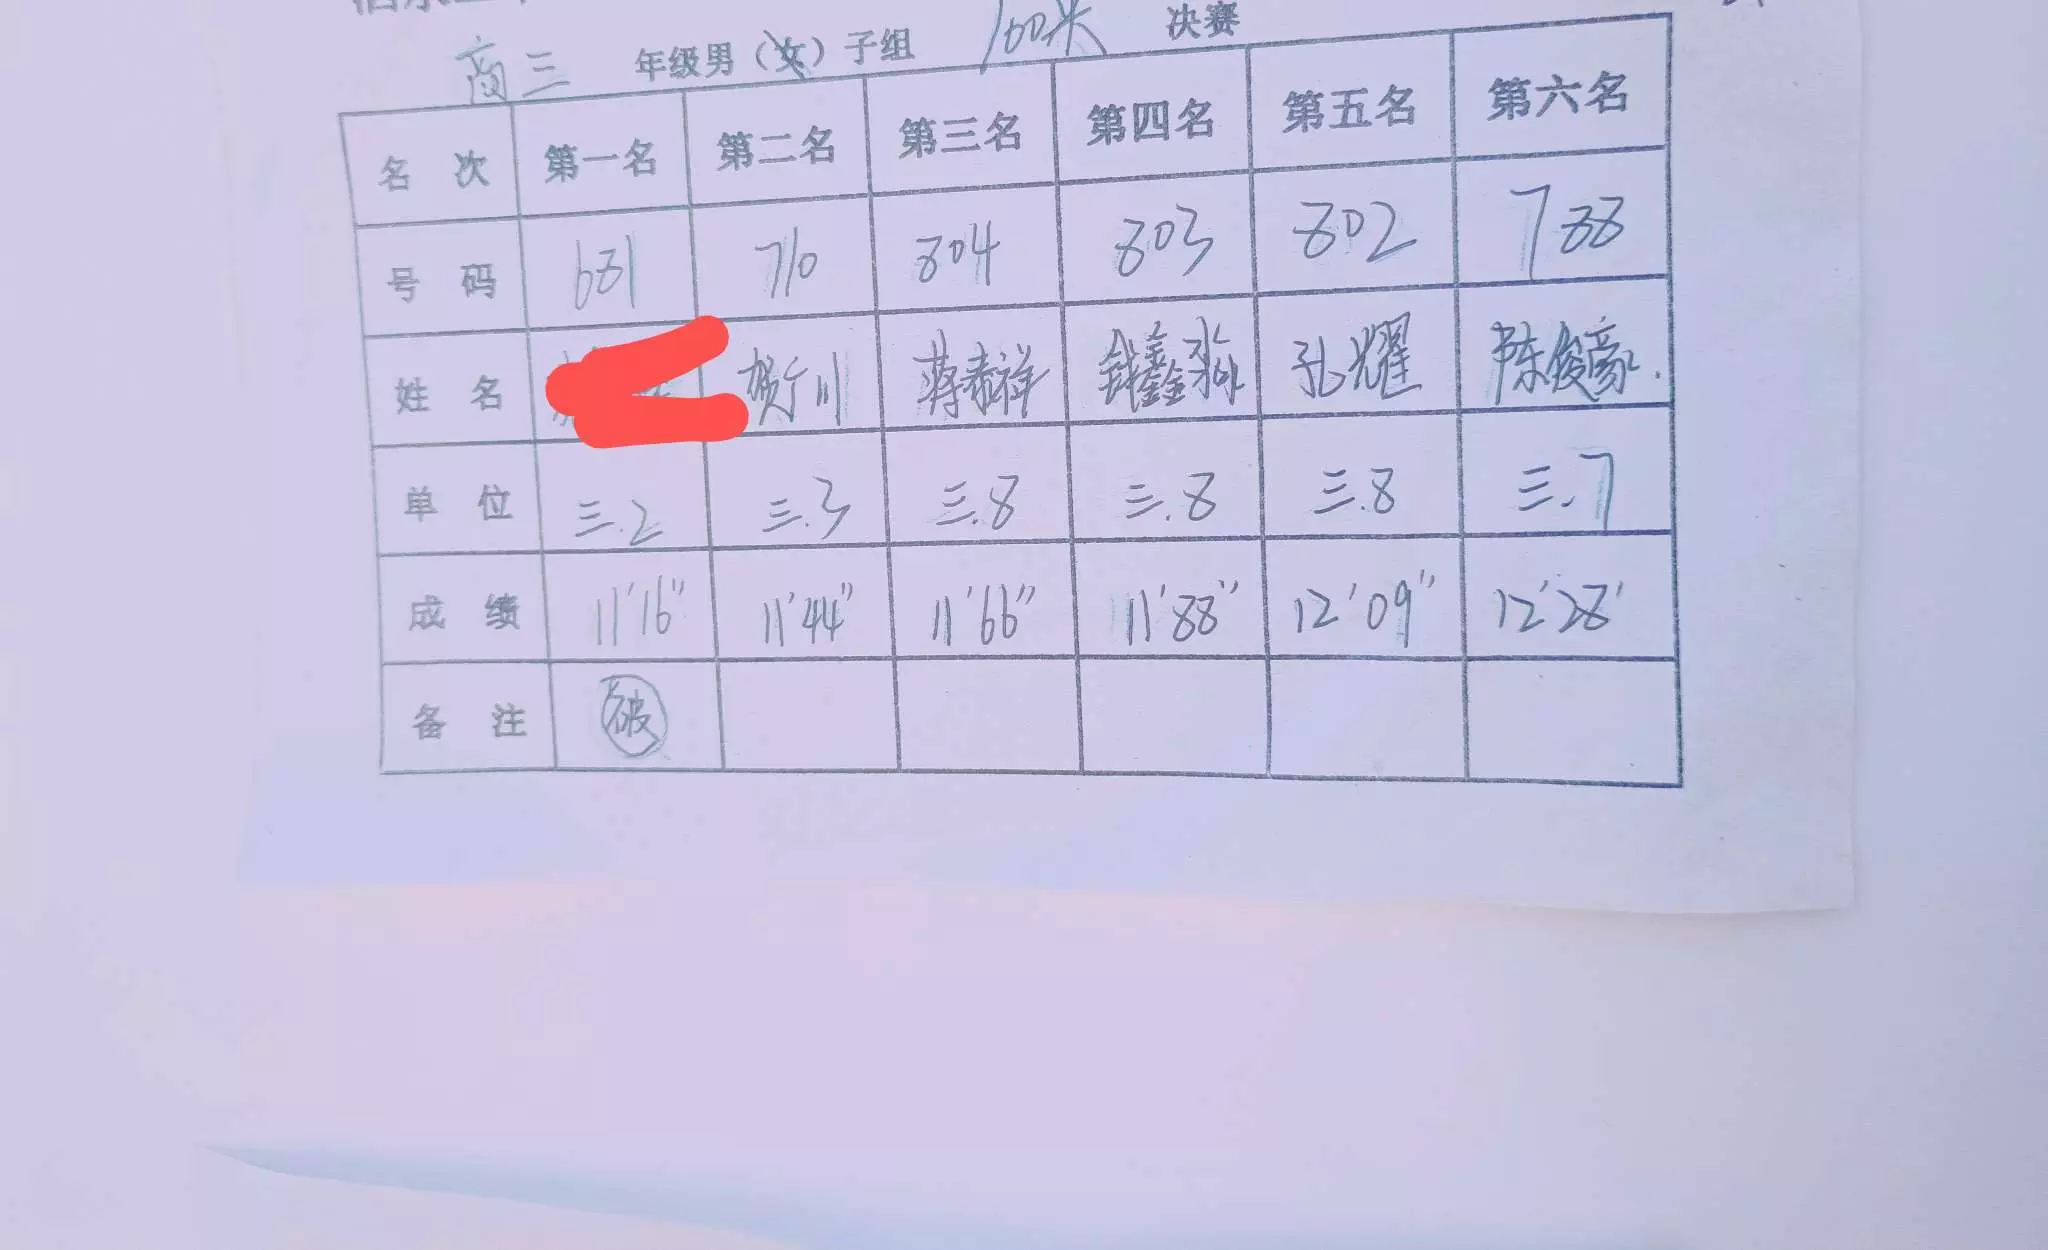 高三 年级男（女）子组 100米 决赛
名次 第一名 第二名 第三名 第四名 第五名 第六名
号码 681 710 804 803 802 788
姓名 贺行川 蒋泰祥 钱鑫淼 孔耀 陈俊豪.
单位 三.2 三.3 三.8 三.8 三.8 三.7
成绩 11'16" 11'44" 11'66" 11'88" 12'09" 12'28'
备注 破